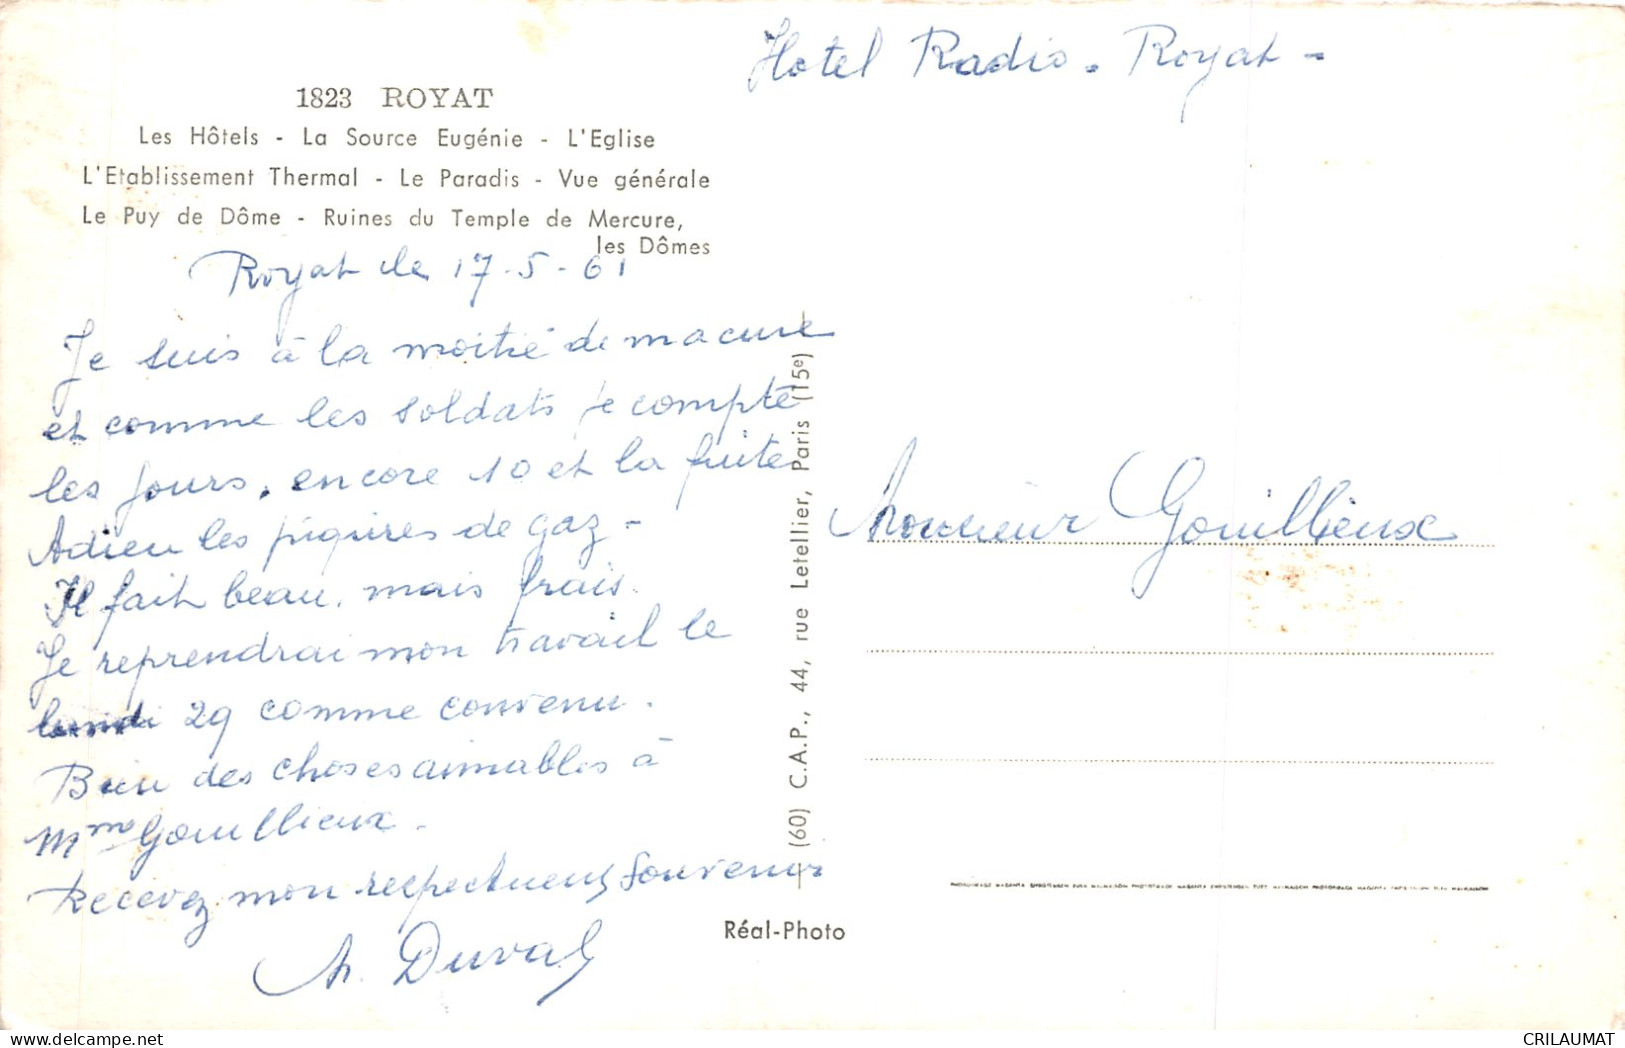 Hotel Radio - Royat -
1823 ROYAT
Les Hôtels - La Source Eugénie - L'Eglise
L'Etablissement Thermal - Le Paradis - Vue générale
Le Puy de Dôme - Ruines du Temple de Mercure,
les Dômes
Royat le 17-5-61
Je suis à la moitié de ma cure
et comme les soldats je compte
les jours, encore 10 et la fuite
Adieu les piqûres de gaz -
Il fait beau, mais frais.
Je reprendrai mon travail le
lundi 29 comme convenu.
Bien des choses aimables à
Mme Gouillieux.
Recevez mon respectueux souvenir
Duval
(60) C.A.P., 44, rue Letellier, Paris (15e)
Réal-Photo
Monsieur Gouillieux
CRILAUMAT